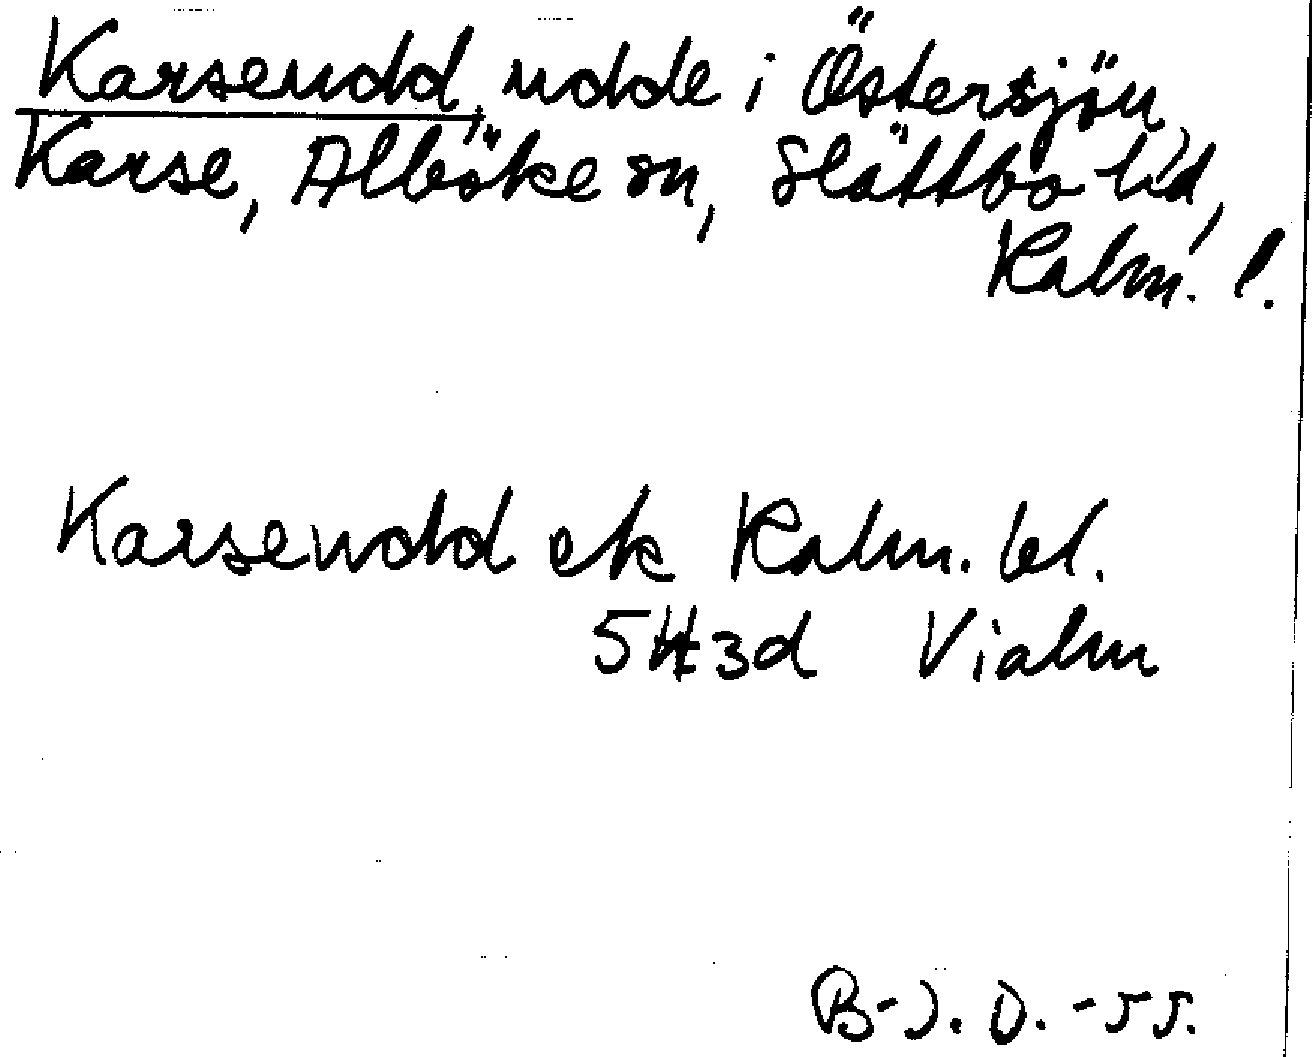 Karseudd, udde i Östersjön,
Karse, Alböke sn, Slättbo hd,
Kalm. l.
Karseudd ek Kalm. bl.
5H3d Vialm
B-J. O. -55.